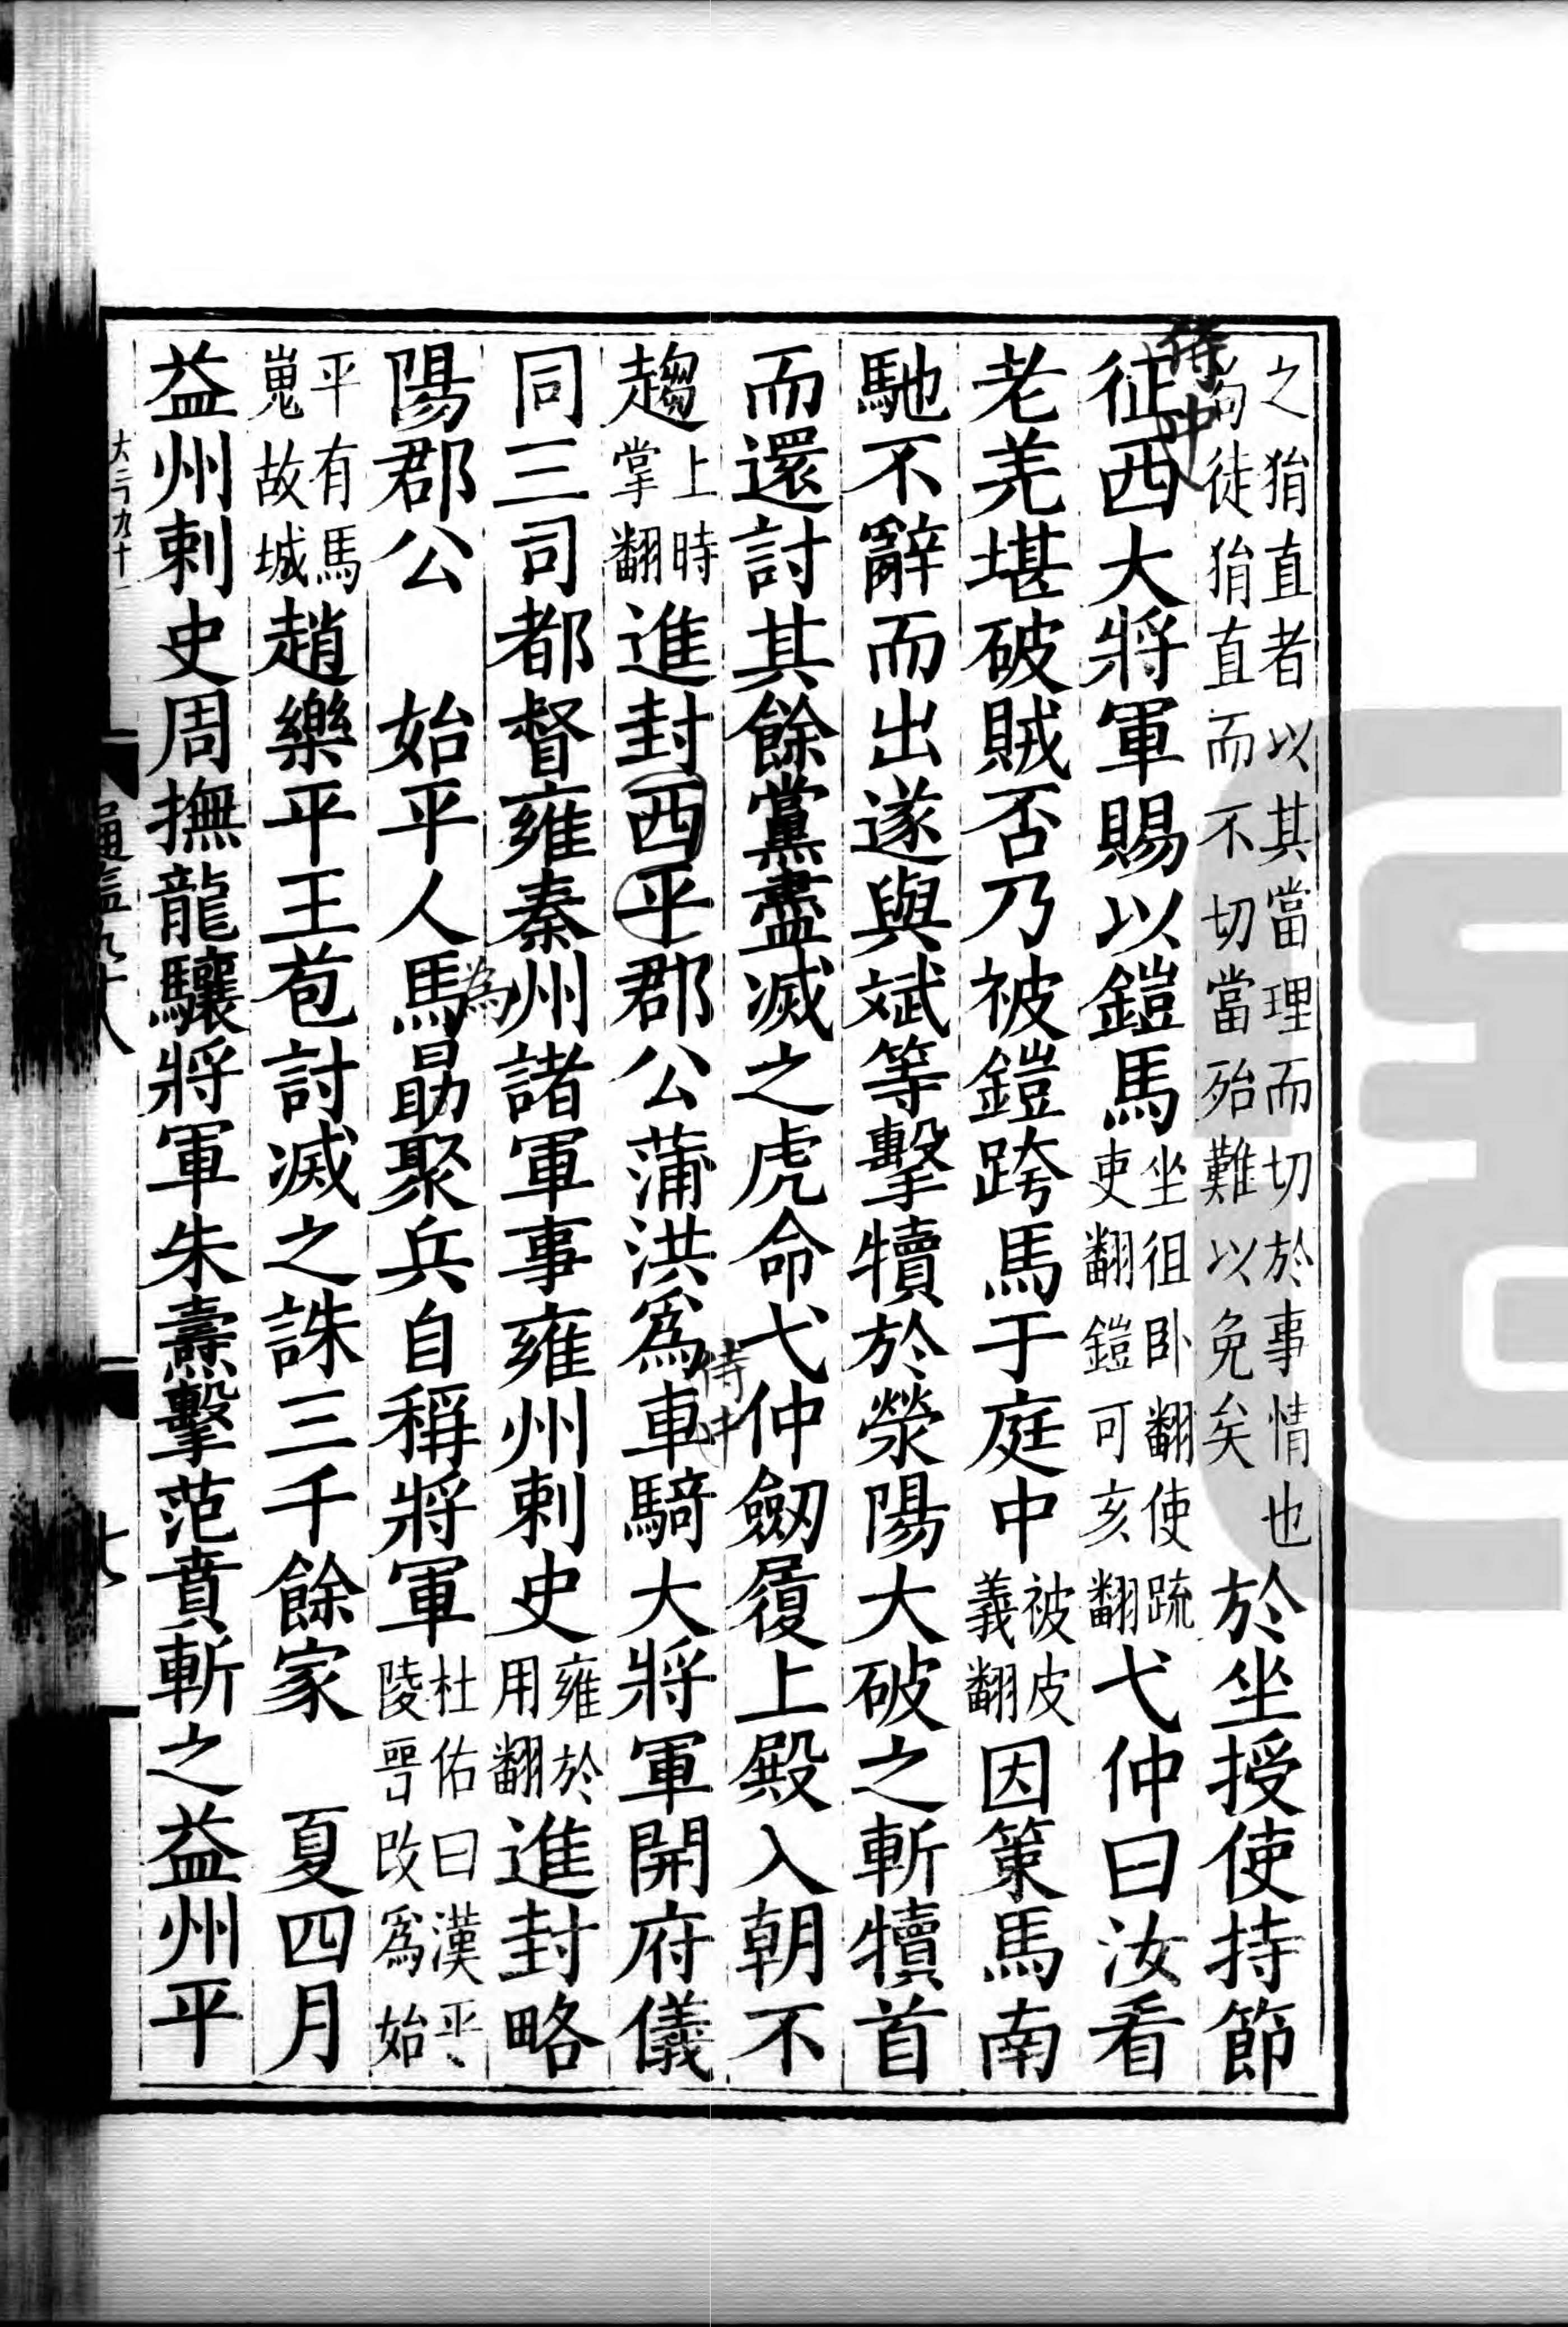 之狷直者以其當理而切於事情也徒狷直而不切當殆難以免矣於坐授使持節
侍中
征西大將軍賜以鎧馬坐徂卧翻使疏吏翻鎧可亥翻弋仲曰汝看
老羌堪破賊否乃被鎧跨馬于庭中被皮義翻因策馬南
馳不辭而出遂與斌等擊犢於滎陽大破之斬犢首
而還討其餘黨盡滅之虎命弋仲劒履上殿入朝不
趨上時掌翻進封西平郡公蒲洪爲車騎大將軍開府儀
侍中
同三司都督雍秦州諸軍事雍州刺史雍於用翻進封略
為
陽郡公　始平人馬勗聚兵自稱將軍杜佑曰漢平陵晉改爲始
平有馬嵬故城趙樂平王苞討滅之誅三千餘家　夏四月
益州刺史周撫龍驤將軍朱燾擊范賁斬之益州平